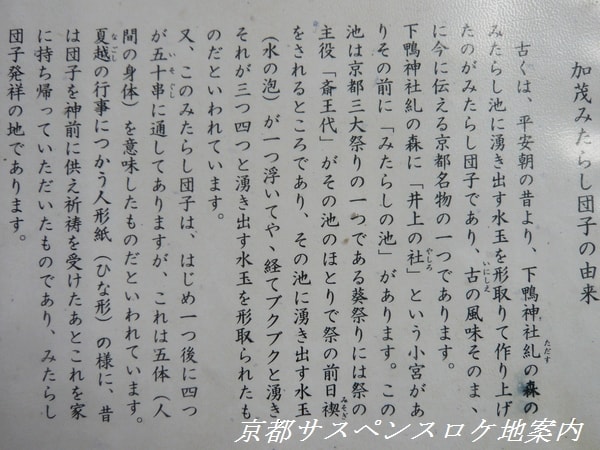 加茂みたらし団子の由来
古くは、平安朝の昔より、下鴨神社糺の森の
ただす
みたらし池に湧き出す水玉を形取りて作り上げ
たのがみたらし団子であり、古の風味そのまゝ
いにしえ
に今に伝える京都名物の一つであります。
下鴨神社糺の森に「井上の社」という小宮があ
やしろ
りその前に「みたらしの池」があります。この
池は京都三大祭りの一つである葵祭りには祭の
主役「斎王代」がその池のほとりで祭の前日禊
みそぎ
をされるところであり、その池に湧き出す水玉
（水の泡）が一つ浮いてや、経てブクブクと湧き
それが三つ四つと湧き出す水玉を形取られたも
のだといわれています。
又、このみたらし団子は、はじめ一つ後に四つ
が五十串に通してありますが、これは五体（人
いそぐし
間の身体）を意味したものだといわれています。
夏越の行事につかう人形紙（ひな形）の様に、昔
なごし
は団子を神前に供え祈祷を受けたあとこれを家
に持ち帰っていただいたものであり、みたらし
団子発祥の地であります。
京都サスペンスロケ地案内